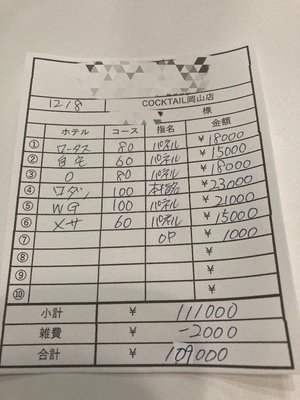 12/8
COCKTAIL岡山店
様
ホテル コース 指名 金額
① ロータス 80 パネル ¥18000
② 自宅 60 パネル ¥15000
③ O 80 パネル ¥18000
④ 100 本指名 ¥23000
⑤ WG 100 パネル ¥21000
⑥ メサ 60 パネル ¥15000
⑦ OP ¥1000
⑧ ¥
⑨ ¥
⑩ ¥
小計 ¥ 111000
雑費 ¥ -2000
合計 ¥ 109000